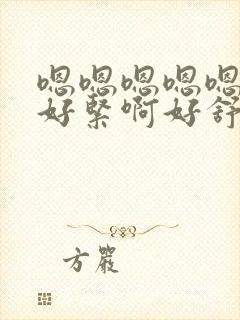 嗯嗯嗯嗯嗯
好紧啊好舒
方严